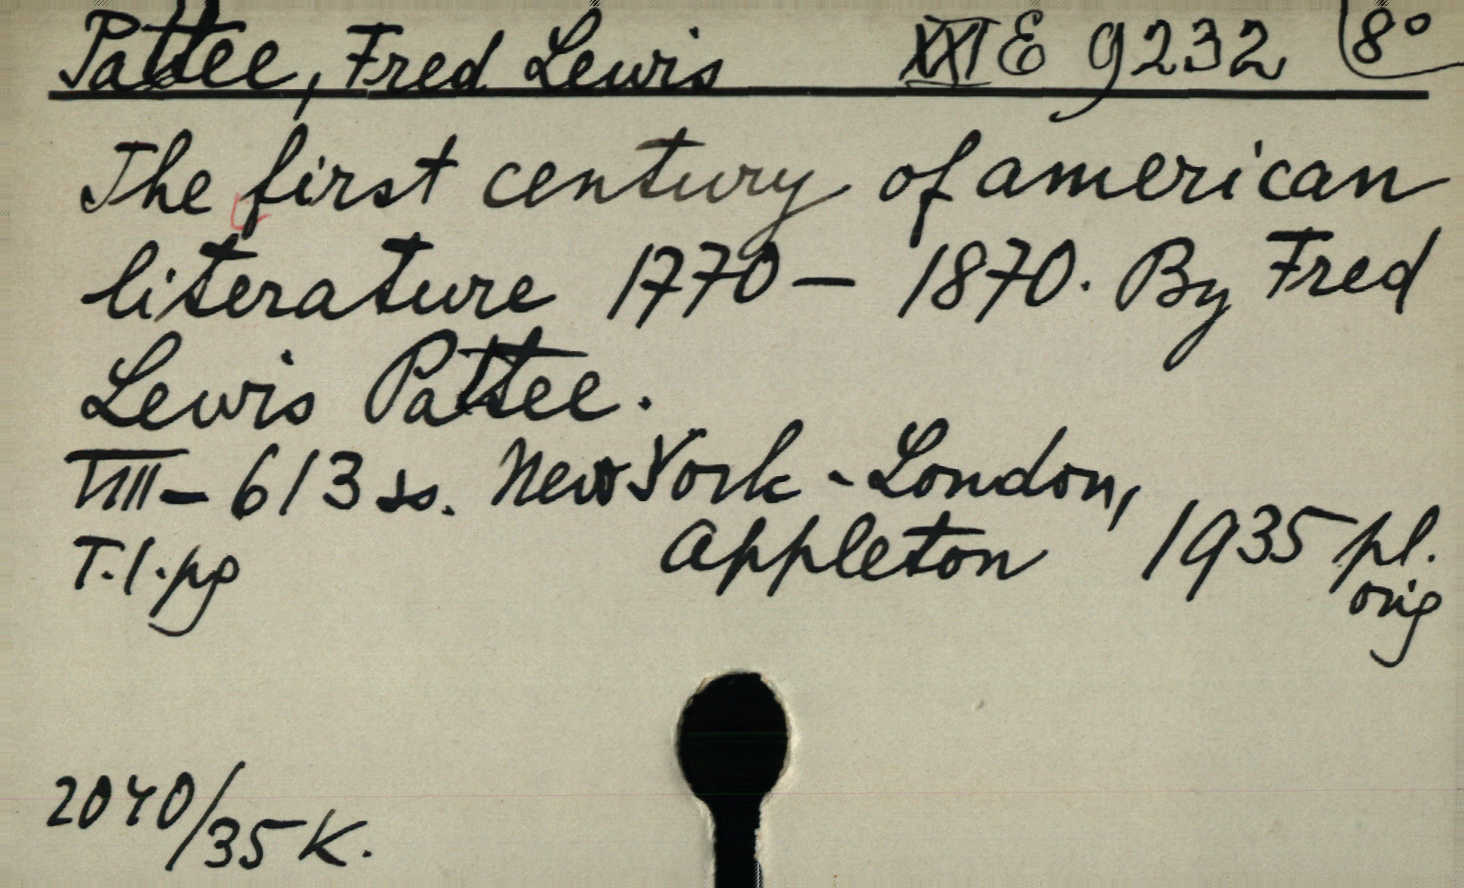 Pattee, Fred Lewis XXI E 9232 8°
The first century of american
literature 1770 - 1870. By Fred
Lewis Pattee.
VIII - 613 ss. New York - London,
T.1.pg Appleton 1935 pl.
orig
2040/35 K.